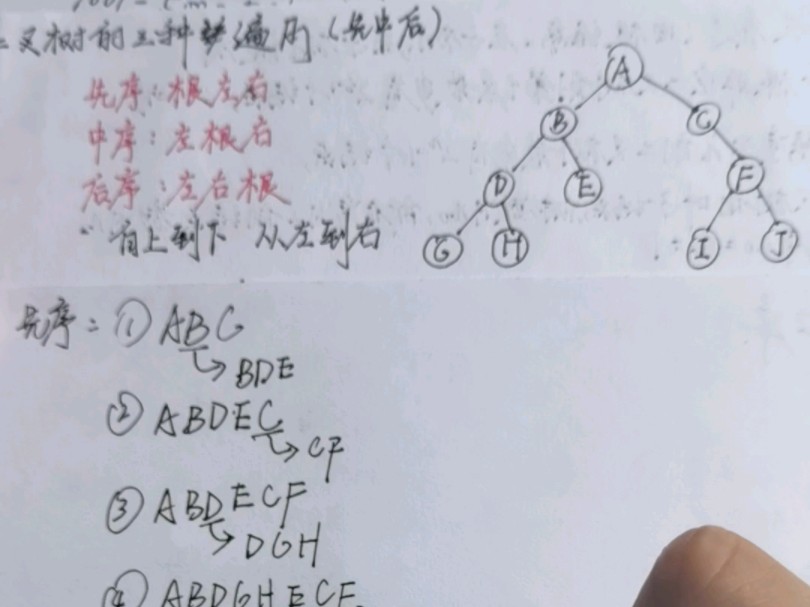 二叉树的三种遍历（先中后）
先序：根左右
中序：左根右
后序：左右根
"自上到下 从左到右
A
B
C
D
E
F
G
H
I
J
先序：① ABC
BDE
② ABDEC
CF
③ ABDECF
DGH
④ ABDGHECF